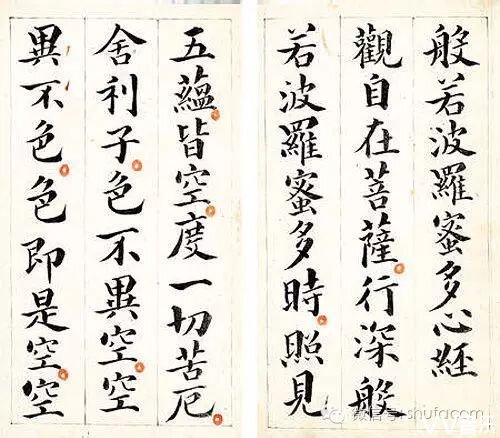 般若波羅蜜多心經
觀自在菩薩行深般
若波羅蜜多時照見
五蘊皆空度一切苦厄
舍利子色不異空空
異不色色即是空空
微信号:shufacom